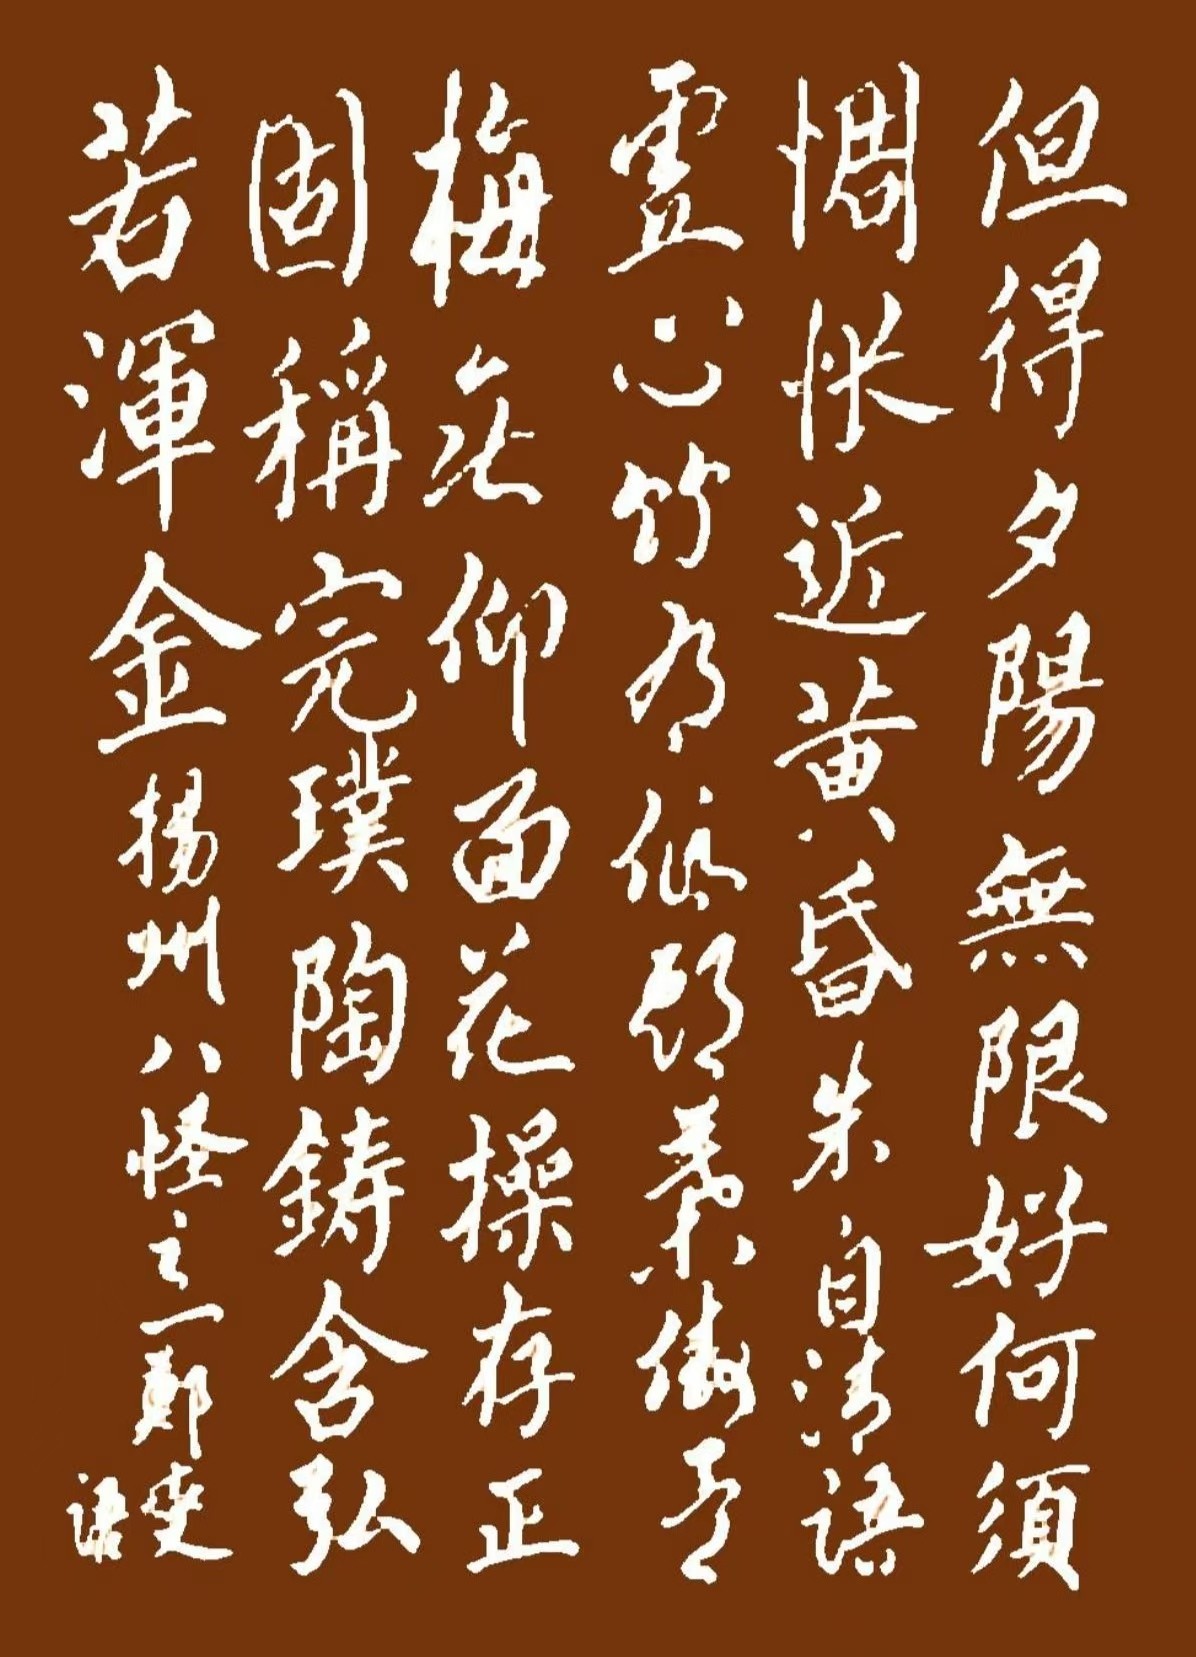 但得夕陽無限好何須
惆悵近黄昏朱自清語
虛心竹有低頭葉傲骨
梅無仰面花操存正
固稱完璞陶鑄含弘
若渾金揚州八怪之一鄭燮
語